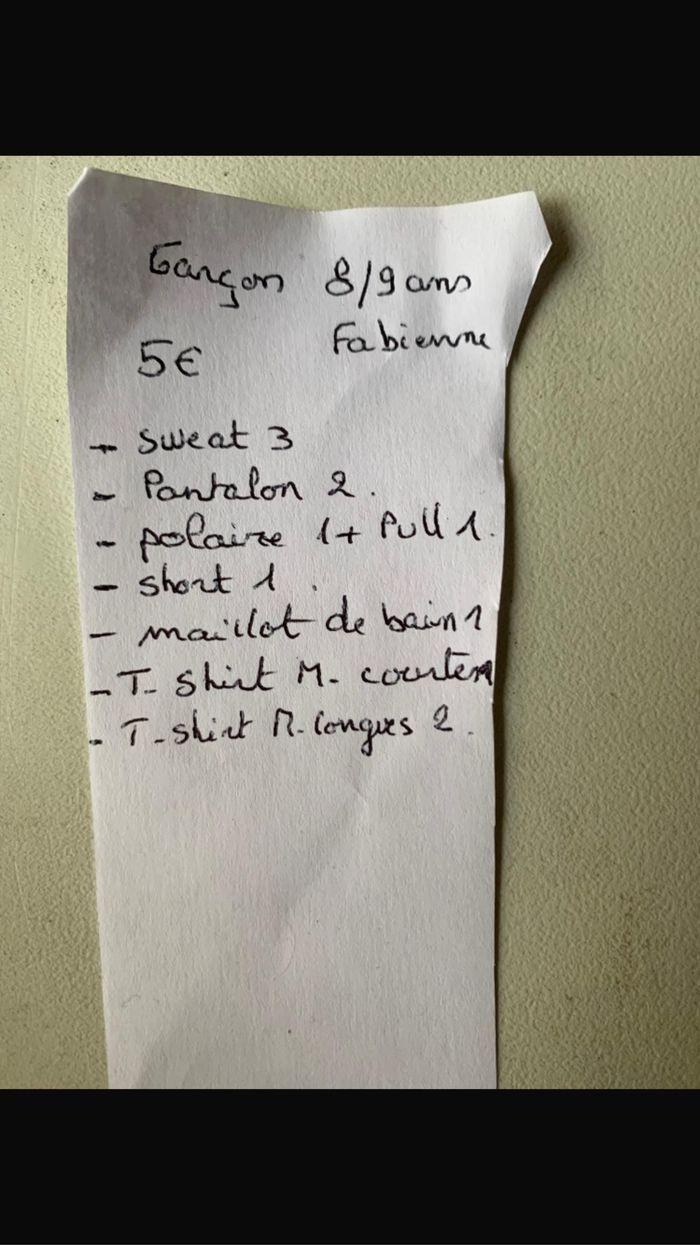 Garçon 8/9 ans
Fabienne
5€
- sweat 3
- Pantalon 2.
- polaire 1 + Pull 1.
- short 1.
- maillot de bain 1
- T-shirt M. courtes 1
- T-shirt M. longues 2.